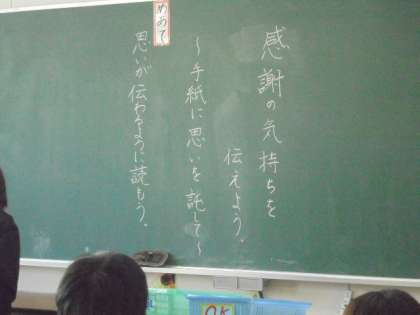 感謝の気持ちを
伝えよう。
～手紙に思いを託して～
めあて
思いが伝わるように読もう。
OK